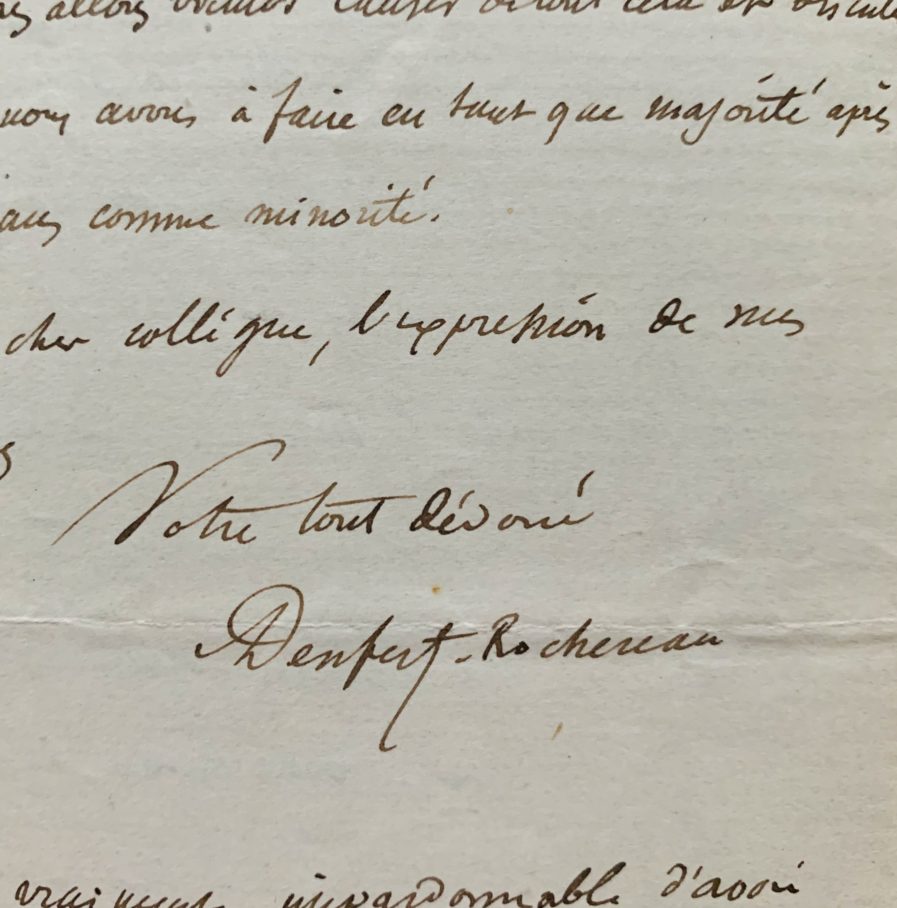 allons causer de tout cela et
nous avons à faire en tant que majorité après
comme minorité.
cher collègue, l'expression de mes
Votre tout dévoué
Denfert-Rochereau
vraiment impardonnable d'avoir